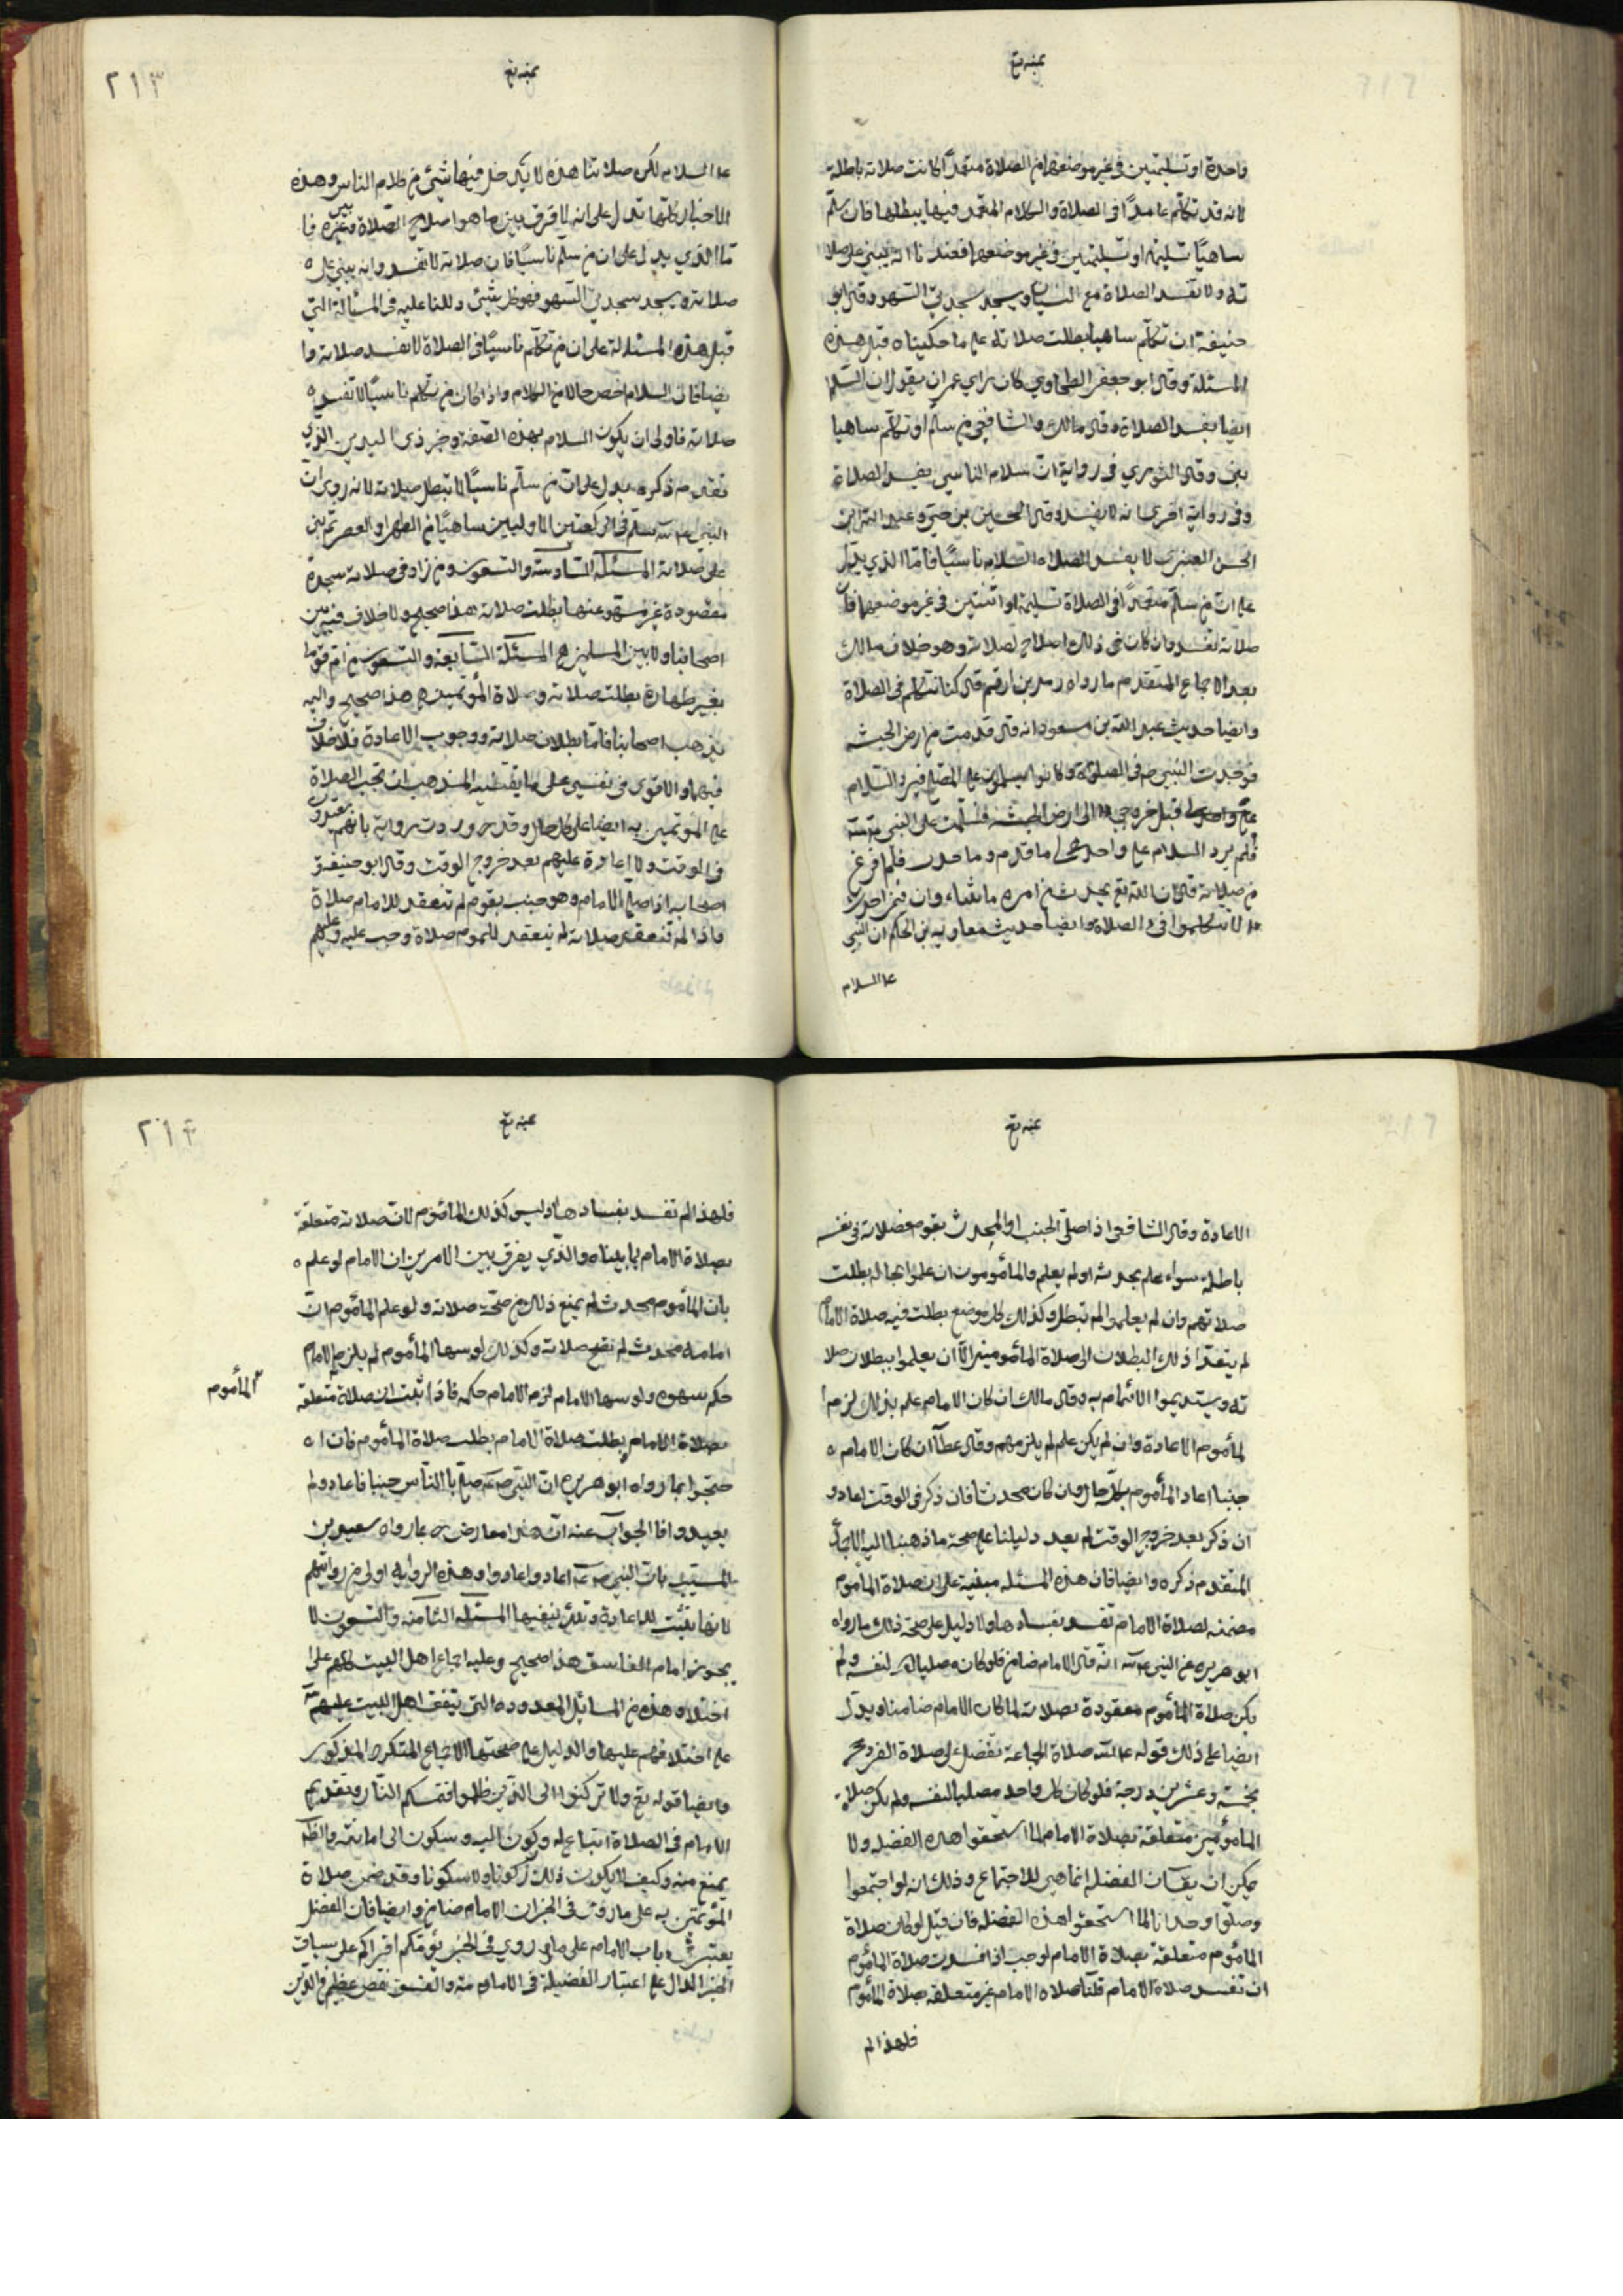 واحدة او تسليمتين في غير موضعهما من الصلاة متعمدًا كانت صلاته باطلة
لانه قد تكلم عامدًا في الصلاة والكلام المتعمد فيها يبطلها فان سلم
ساهيًا تسليمة او تسليمتين في غير موضعهما فعندنا انه يبني على صلا
ته ولا تفسد الصلاة مع النسيان ويسجد سجدتي السهو وقال ابو
حنيفة ان تكلم ساهيا بطلت صلاته على ما حكيناه قبل هذه
المسئلة وقال ابو جعفر الطحاوي كان براي عمران يقول ان السلا
ايضا يفسد الصلاة وقال مالك والشافعي من سلم او تكلم ساهيا
بنى وقال الثوري في رواية ان سلام الناسي يفسد الصلاة
وفي رواية اخرى انه لا يفسد وقال الحسن بن حي وعبيد الله بن
الحسن العنبري لا يفسد الصلاة السلام ناسيًا فاما الذي يدل
على ان من سلم متعمدًا في الصلاة تسليمة او اثنتين في غير موضعهما فان
صلاته تفسد وان كان نحو ذلك اصلاح لصلاته وهو خلاف مالك
بعد الاجماع المتقدم ما رواه زيد بن ارقم قال كنا نتكلم في الصلاة
وايضا حديث عبد الله بن مسعود انه قال قدمت من ارض الحبشة
فوجدت النبي ص في الصلوة وكانوا يسلمون على المصلي فيرد السلام
قبل خروجي الى ارض الحبشة فسلمت على النبي
فلم يرد السلام على واحد ما قدم وما حدث فلما فرغ
من صلاته قال ان الله تع يحدث من امره ما شاء وان فيما احدث
الا تتكلموا في الصلاة وايضا حديث معاوية بن الحكم ان النبي
ع السلام
٢١٣
ع السلام لكن صلاتنا هذه لا يدخل فيها شئ من كلام الناس وهذه
الاخبار كلها تدل على انه لا فرق بين ما هو اصلاح الصلاة وبين غيره فا
ما الذي يدل على ان من سلم ناسيًا فان صلاته لا تفسد وانه يبني على
صلاته ويسجد سجدتي السهو فهو كل شئ دللنا عليه في المسألة التي
قبل هذه المسئلة على ان من تكلم ناسيًا في الصلاة لا تفسد صلاته وا
يضا فان السلام اخص حالا من الكلام واذا كان من تكلم ناسيًا لا تفسد
صلاته فاولى ان يكون السلام بهذه الصفة وخبر ذي اليدين الذي
تقدم ذكره يدل على ان من سلم ناسيًا لا تبطل صلاته لانه روى ان
النبي سلم في الركعتين الاوليين ساهيًا من الظهر او العصر ثم بنى
على صلاته المسئلة السادسة والتسعون ومن زاد في صلاته سجدة
مقصودة غير مسهو عنها بطلت صلاته هذا صحيح ولا خلاف فيه بين
اصحابنا ولا بين المسلمين المسئلة السابعة والتسعون من ام قوما
بغير طهارة بطلت صلاته وصلاة المؤتمين به هذا صحيح واليه
يذهب اصحابنا فاما بطلان صلاته ووجوب الاعادة فلا خلاف
فيهما والاقوى في نفسي على ما يقتضيه المذهب ان تجب الصلاة
على المؤتمين به ايضا على كل حال وقد وردت رواية بانهم يعيدون
في الوقت ولا اعادة عليهم بعد خروج الوقت وقال ابو حنيفة و
اصحابه اذا صلى الامام وهو جنب بقوم لم تنعقد للامام صلاة
واذا لم تنعقد صلاته لم ينعقد للمأموم صلاة وجب عليه وعليهم
الاعادة وقال الشافعي اذا صلى الجنب او المحدث بقوم فصلاته في نفسه
باطلة سواء علم بحدثه او لم يعلم والمأمومون ان علموا بحاله بطلت
صلاتهم وان لم يعلموا لم تبطل وكذلك كل موضع بطلت فيه صلاة الامام
لم يتعد ذلك البطلان الى صلاة المأمومين الا ان يعلموا ببطلان صلا
ته ويستديموا الائتمام به وقال مالك ان كان الامام علم بذلك لزم ا
لمأموم الاعادة وان لم يكن علم لم يلزمهم وقال عطا ان كان الامام
جنبا اعاد المأموم بكل حال وان كان محدثا فان ذكر في الوقت اعاد و
ان ذكر بعد خروج الوقت لم يعد دليلنا على صحة ما ذهبنا اليه الاجماع
المتقدم ذكره وايضا فان هذه المسئلة مبنية على ان صلاة المأموم
مضمنة لصلاة الامام تفسد بفسادها والدليل على صحة ذلك ما رواه
ابو هريرة عن النبي انه قال الامام ضامن فلو كان مصليا لنفسه ولم
يكن صلاة المأموم معقودة بصلاته لما كان الامام ضامنا ويدل
ايضا على ذلك قوله صلاة الجماعة تفضل على صلاة الفرد
بخمسة وعشرين درجة فلو كان كل واحد مصليا لنفسه ولم يكن صلاة
المأمومين متعلقة بصلاة الامام لما استحقوا هذه الفضيلة ولا
يمكن ان يقال ان الفضل انما هي للاجتماع وذلك انه لو اجتمعوا
وصلوا وحدانا لما استحقوا هذه الفضيلة فان قيل لو كان صلاة
المأموم متعلقة بصلاة الامام لوجب اذا فسدت صلاة المأموم
ان تفسد صلاة الامام قلنا صلاة الامام غير متعلقة بصلاة المأموم
فلهذا لم
٢١٤
فلهذا لم تفسد بفسادها وليس كذلك المأموم لان صلاته متعلقة
بصلاة الامام لما بيناه والذي يفرق بين الامرين ان الامام لو علم
بان المأموم محدث لم يمنع ذلك من صحة صلاته ولو علم المأموم ان
امامه محدث لم تصح صلاته وكذلك لو سها المأموم لم يلزم الامام
حكم سهوه ولو سها الامام لزم الامام حكمه فاذا ثبت ان صلاة متعلقة
المأموم
بصلاة الامام بطلت صلاة الامام بطلت صلاة المأموم فان ا
حتجوا بما رواه ابو هريره ان النبي ص صلى بالناس جنبا فاعاد ولم
يعيدوا فالجواب عنه ان هذا معارض بما رواه سعيد بن
المسيب بان النبي اعاد واعادوا وهذه الرواية اولى من روايتهم
لانها تثبت للاعادة وتلك تنفيها المسئلة الثامنة والتسعون لا
يجوز امامة الفاسق هذا صحيح وعليه اجماع اهل البيت كلهم على
اختلافه وهذه من المسائل المعدودة التي يتفق اهل البيت عليهم
على اختلافهم عليها والدليل على صحتها الاجماع المتكرر المذكور
وايضا قوله تع ولا تركنوا الى الذين ظلموا فتمسكم النار وتقديم
الامام في الصلاة اتباع له وركون اليه وسكون الى امانته والظلم
يمنع منه وكيف لا يكون ذلك ركونا ولا سكونا وقد ضمن صلاة
المؤتمين به على ما روي في الخبر ان الامام ضامن وايضا فان الفضل
يعتبر في باب الامام على ما روي في الخبر يؤمكم اقراكم على سياق
الخبر الدال على اعتبار الفضيلة في الامامة والفسق نقص عظيم في الدين